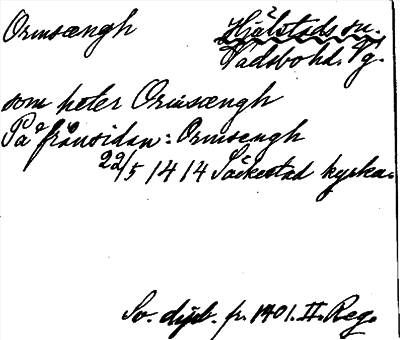 Ormsængh Hjälstads sn.
Vadsbo hd. Vg.
som heter Ormsængh
På frånsidan: Ormsengh
22/5 1414 Säckestad kyrka.
Sv. dipl. fr. 1401. II. Reg.